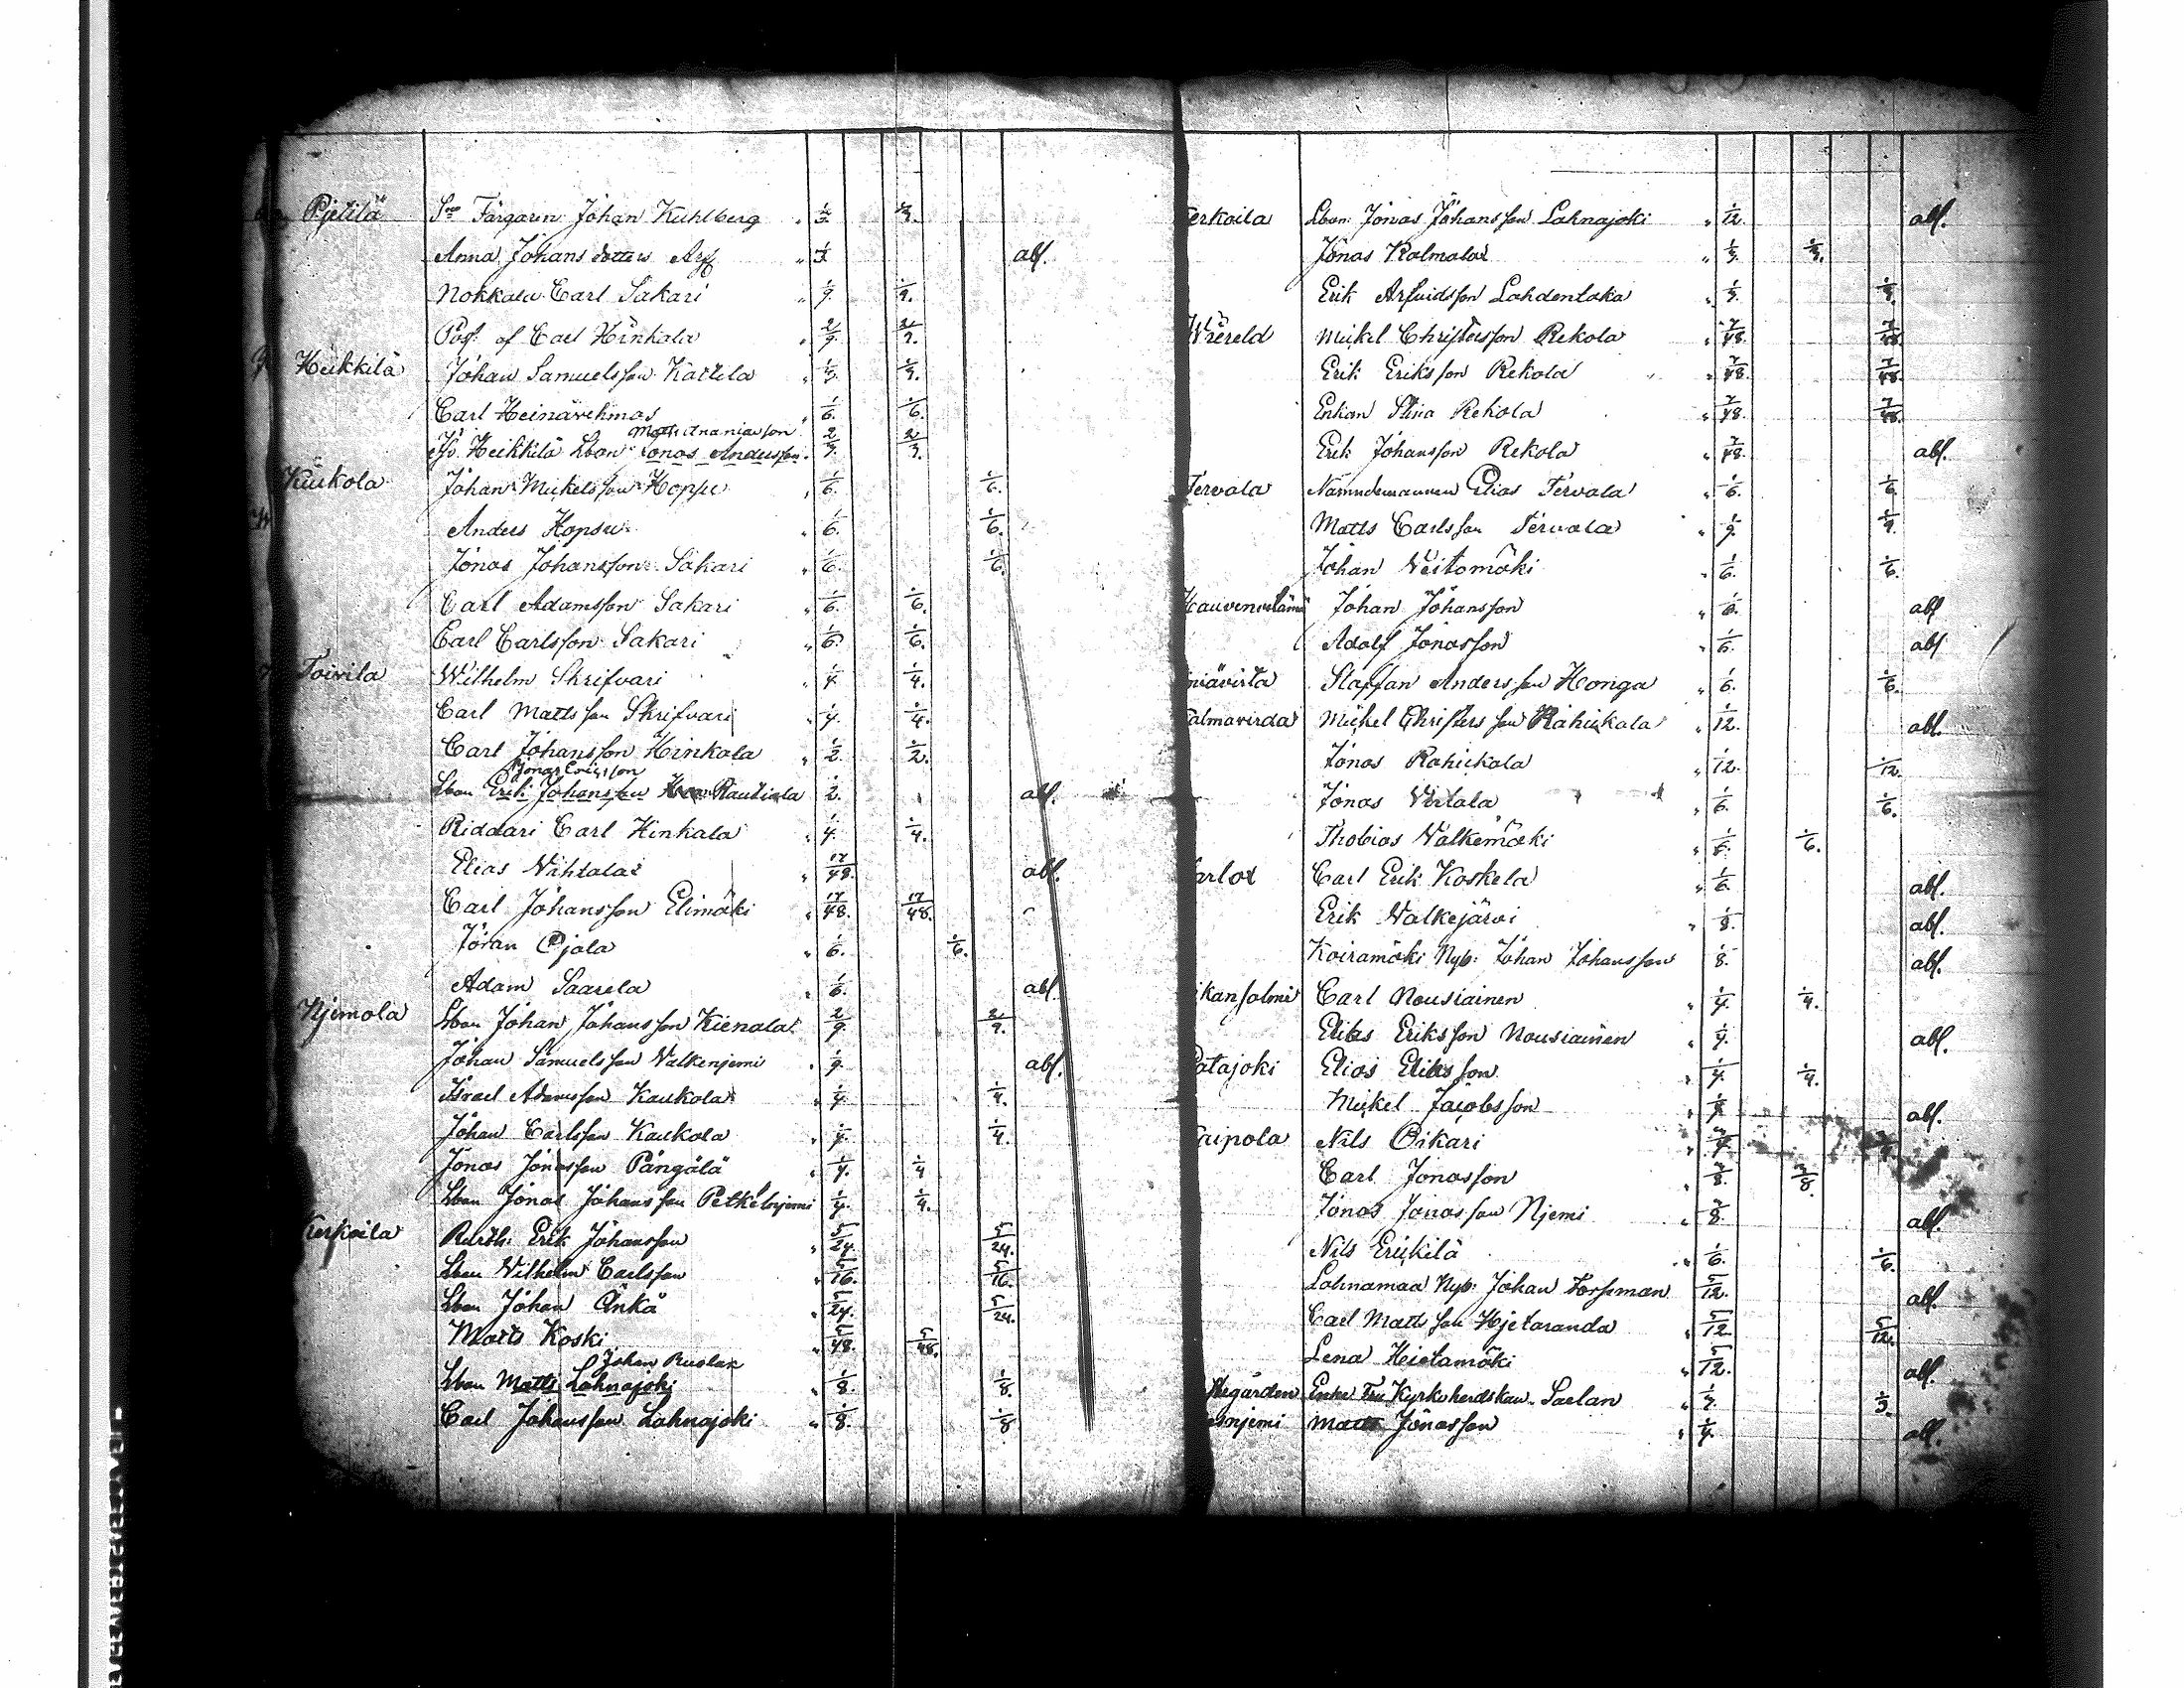 Pjetilä Sr Färgaren Johan Kuhlberg " 1/3 1/3.
Anna Johans dotters Arf " 1/3 abs.
Nokkala Carl Sakari " 1/9. 1/9.
Poss. af Carl Hinkala " 2/9. 2/9.
Heikkilä Johan Samuelsson Kattila " 1/3. 1/3.
Carl Heinävehmas " 1/6. 1/6.
Matts Ananiasson
Heikkilä Lbon Jonas Andersson 2/3. 2/3.
Kuukola Johan Mickelsson Hopsu " 1/6. 1/6.
Anders Hopsu " 1/6. 1/6.
Jonas Johansson Sakari " 1/6. 1/6.
Carl Adamsson Sakari " 1/6. 1/6.
Carl Carlsson Sakari " 1/6. 1/6.
Toivila Wilhelm Skrifvari " 1/4. 1/4.
Carl Mattsson Skrifvari " 1/4. 1/4.
Carl Johansson Hinkala " 1/2. 1/2.
Jonas Ericsson
Lbon Erik Johansson Rautiala 1/2. abs.
Riddari Carl Hinkala " 1/4. 1/4.
Elias Vihtala " 17/48. abs.
Carl Johansson Elimäki " 17/48. 17/48.
Jöran Ojala " 1/6. 1/6.
Adam Saarela " 1/6. abs.
Njemola Lbon Johan Johansson Kienala 2/9. 2/9.
Johan Samuelsson Valkenjemi " 1/9. abs.
Israel Adamsson Kaukola " 1/4. 1/4.
Johan Carlsson Kaukola " 1/4. 1/4.
Jonas Jonasson Pängälä " 1/4. 1/4
Lbon Jonas Johansson Petkelnjemi 1/4. 1/4.
Kerkoila Rusth: Erik Johansson " 5/24. 5/24.
Lbon Vilhelm Carlsson " 5/16. 5/16.
Lbon Johan Änkä " 5/24. 5/24.
Matts Koski " 5/48. 5/48.
Johan Ruslan
Lbon Matts Lahnajoki " 1/8. 1/8.
Carl Johansson Lahnajoki " 1/8. 1/8
erkoila Lbon: Jonas Johansson Lahnajoki " 1/12. abs.
Jonas Kalmala " 1/3. 1/3.
Erik Arfvidsson Lahdentaka " 1/3. 1/3.
Mickel Christersson Rekola " 7/48. 7/48.
Erik Eriksson Rekola " 7/48. 7/48.
Enkan Stina Rekola " 7/48. 7/48.
Erik Johansson Rekola " 7/48. abs.
Tervala Nämndemannen Elias Tervala " 1/6. 1/6.
Matts Carlsson Tervala " 1/9. 1/9.
Johan Veitomäki " 1/6. 1/6.
Johan Johansson " 1/6. abs
Adolf Jonasson " 1/6. abs
niävista Staffan Andersson Honga " 1/6. 1/6.
almavirda Mickel Christersson Rahiekala " 1/12. abs.
Jonas Rahickala " 1/12. 1/12.
Jonas Virtala " 1/6. 1/6.
Thobias Valkemäki " 1/6. 1/6.
arlax Carl Erik Koskela " 1/6. abs.
Erik Valkejärvi " 1/8. abs.
Koiramäki Nyb: Johan Johansson 1/8. abs.
ikansalmi Carl Nousiainen " 1/4. 1/4.
Elias Eriksson Nousiainen " 1/4. abs.
Patajoki Elias Eliasson " 1/4. 1/4.
Mickel Jacobsson " 1/4. abs.
aipola Nils Oikari "
Carl Jonasson " 3/8. 3/8.
Jonas Jonasson Njemi " 3/8. abs.
Nils Erickilä " 1/6. 1/6.
Lahnamaa Nyb: Johan Forssman 5/12. abs.
Carl Mattsson Hjetaranda " 5/12. 5/12.
Lena Hietamäki " 5/12. abs.
Enke Fru Kyrkoherdskan Saelan " 1/3. 1/3.
njemi Matts Jonasson " 1/4. abs.